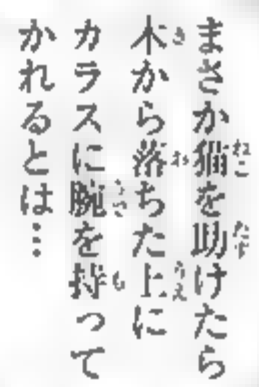 まさか猫を助けたら
木から落ちた上に
カラスに腕を持って
かれるとは…